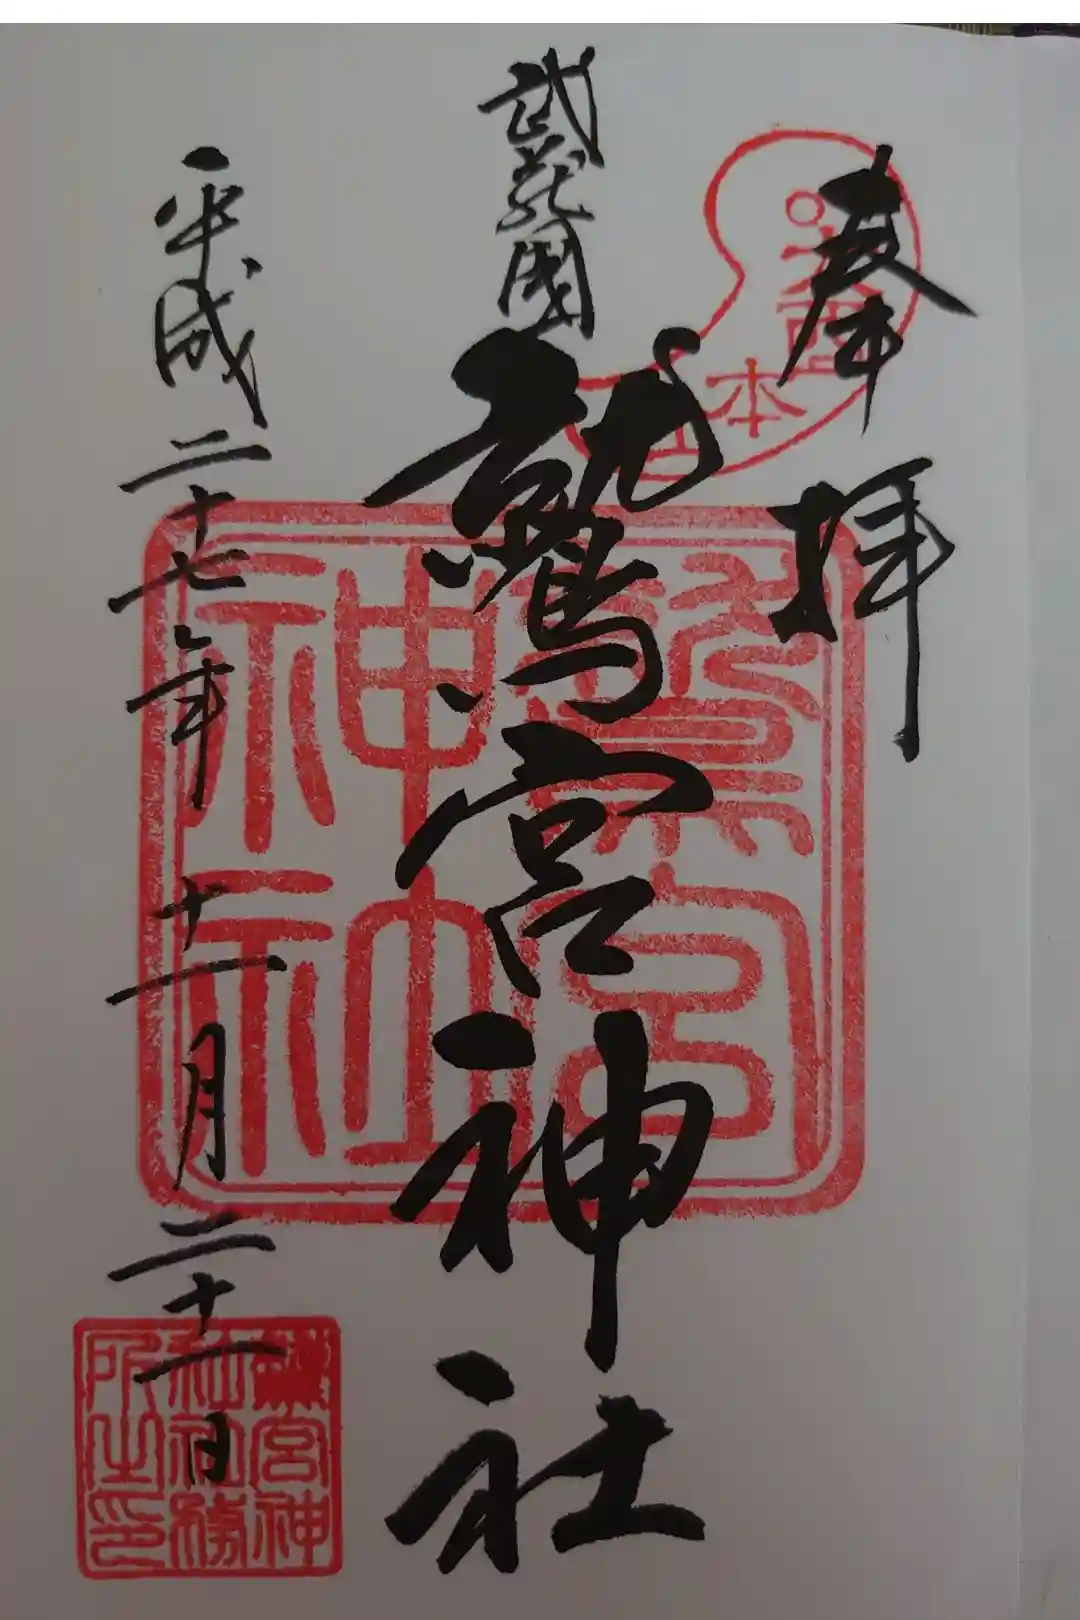 奉拝
武蔵國
鷲宮神社
平成二十七年十一月二十一日
鷲宮神社
本
鷲宮神
社社務
所之印